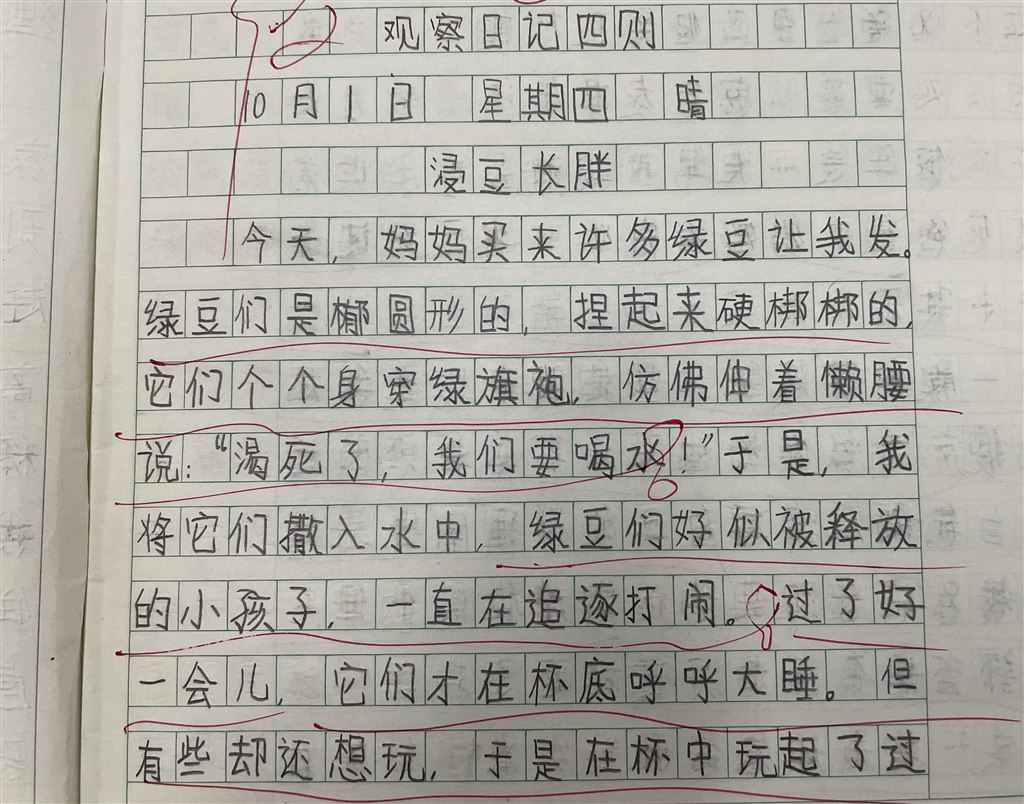 观察日记四则
10月1日 星期四 晴
浸豆长胖
今天,妈妈买来许多绿豆让我发。
绿豆们是椭圆形的,捏起来硬梆梆的,
它们个个身穿绿旗袍,仿佛伸着懒腰
说:“渴死了,我们要喝水!”于是,我
将它们撒入水中,绿豆们好似被释放
的小孩子,一直在追逐打闹。过了好
一会儿,它们才在杯底呼呼大睡。但
有些却还想玩,于是在杯中玩起了过